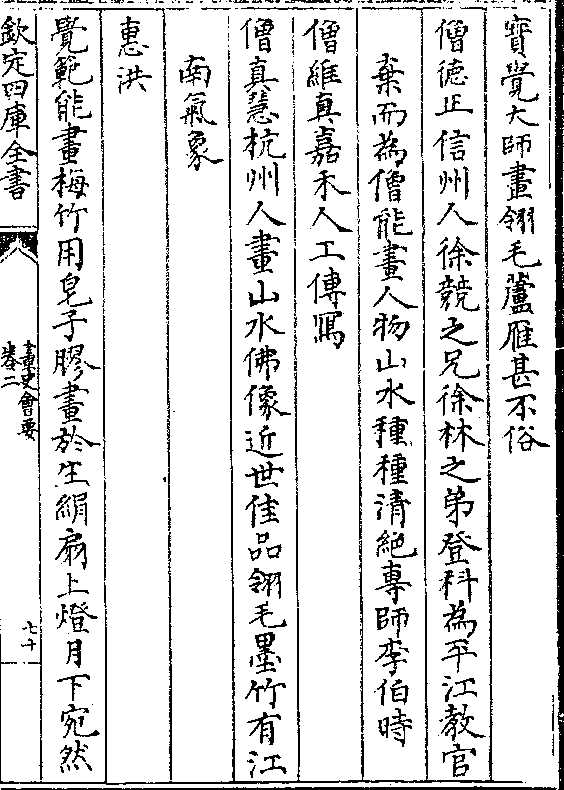 寳覺大師畫翎毛蘆雁甚不俗
僧德正信州人徐競之兄徐林之弟登科為平江教官
棄而為僧能畫人物山水種種清絕專師李伯時
僧維真嘉禾人工傳寫
僧真慧杭州人畫山水佛像近世佳品翎毛墨竹有江
南氣象
惠洪
覺範能畫梅竹用皂子膠畫於生絹扇上燈月下宛然
欽定四庫全書
畫史會要
卷二
七十